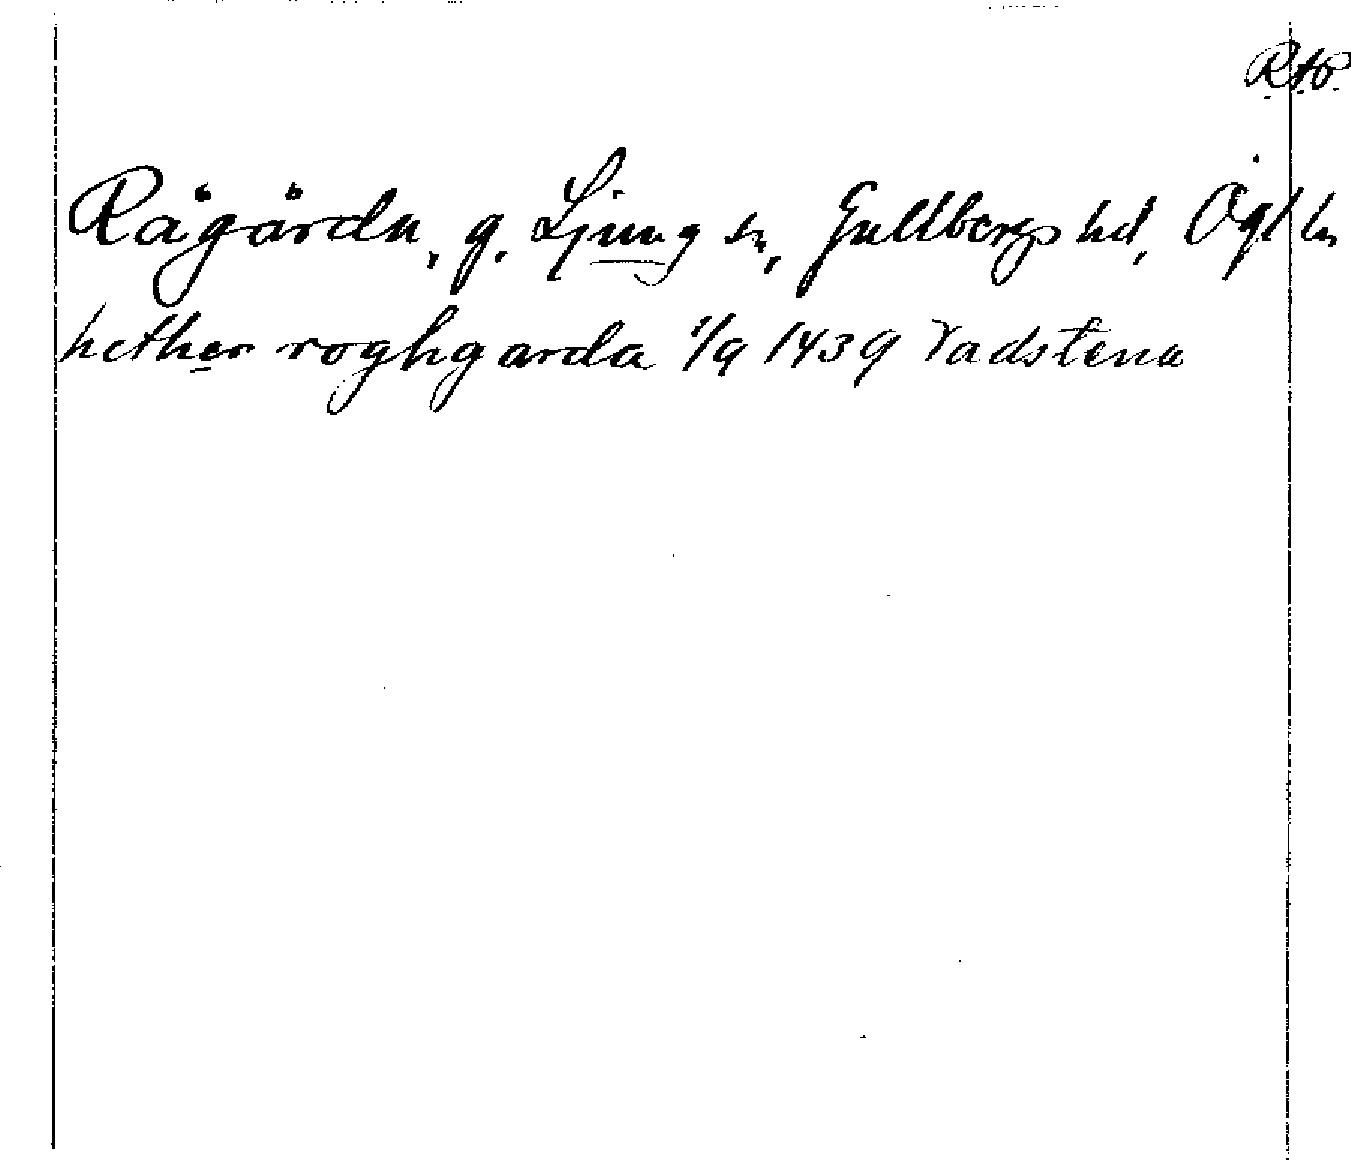 RAP.
Rågårda, g. Ljung sn, Gullbergs hd, Ögl ln
hether roghgarda 1/9 1439 Vadstena